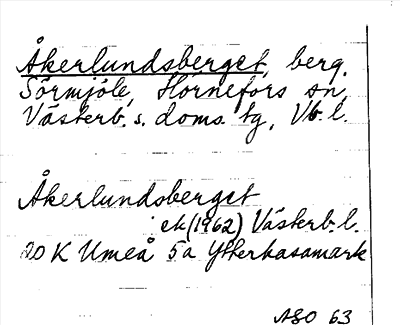 Åkerlundsberget, berg.
Sörmjöle, Hörnefors sn,
Västerb. s. doms. tg, Vb. l.
Åkerlundsberget
ek (1962) Västerb. l.
20 K Umeå 5a Ytterbasamark
ASO 63